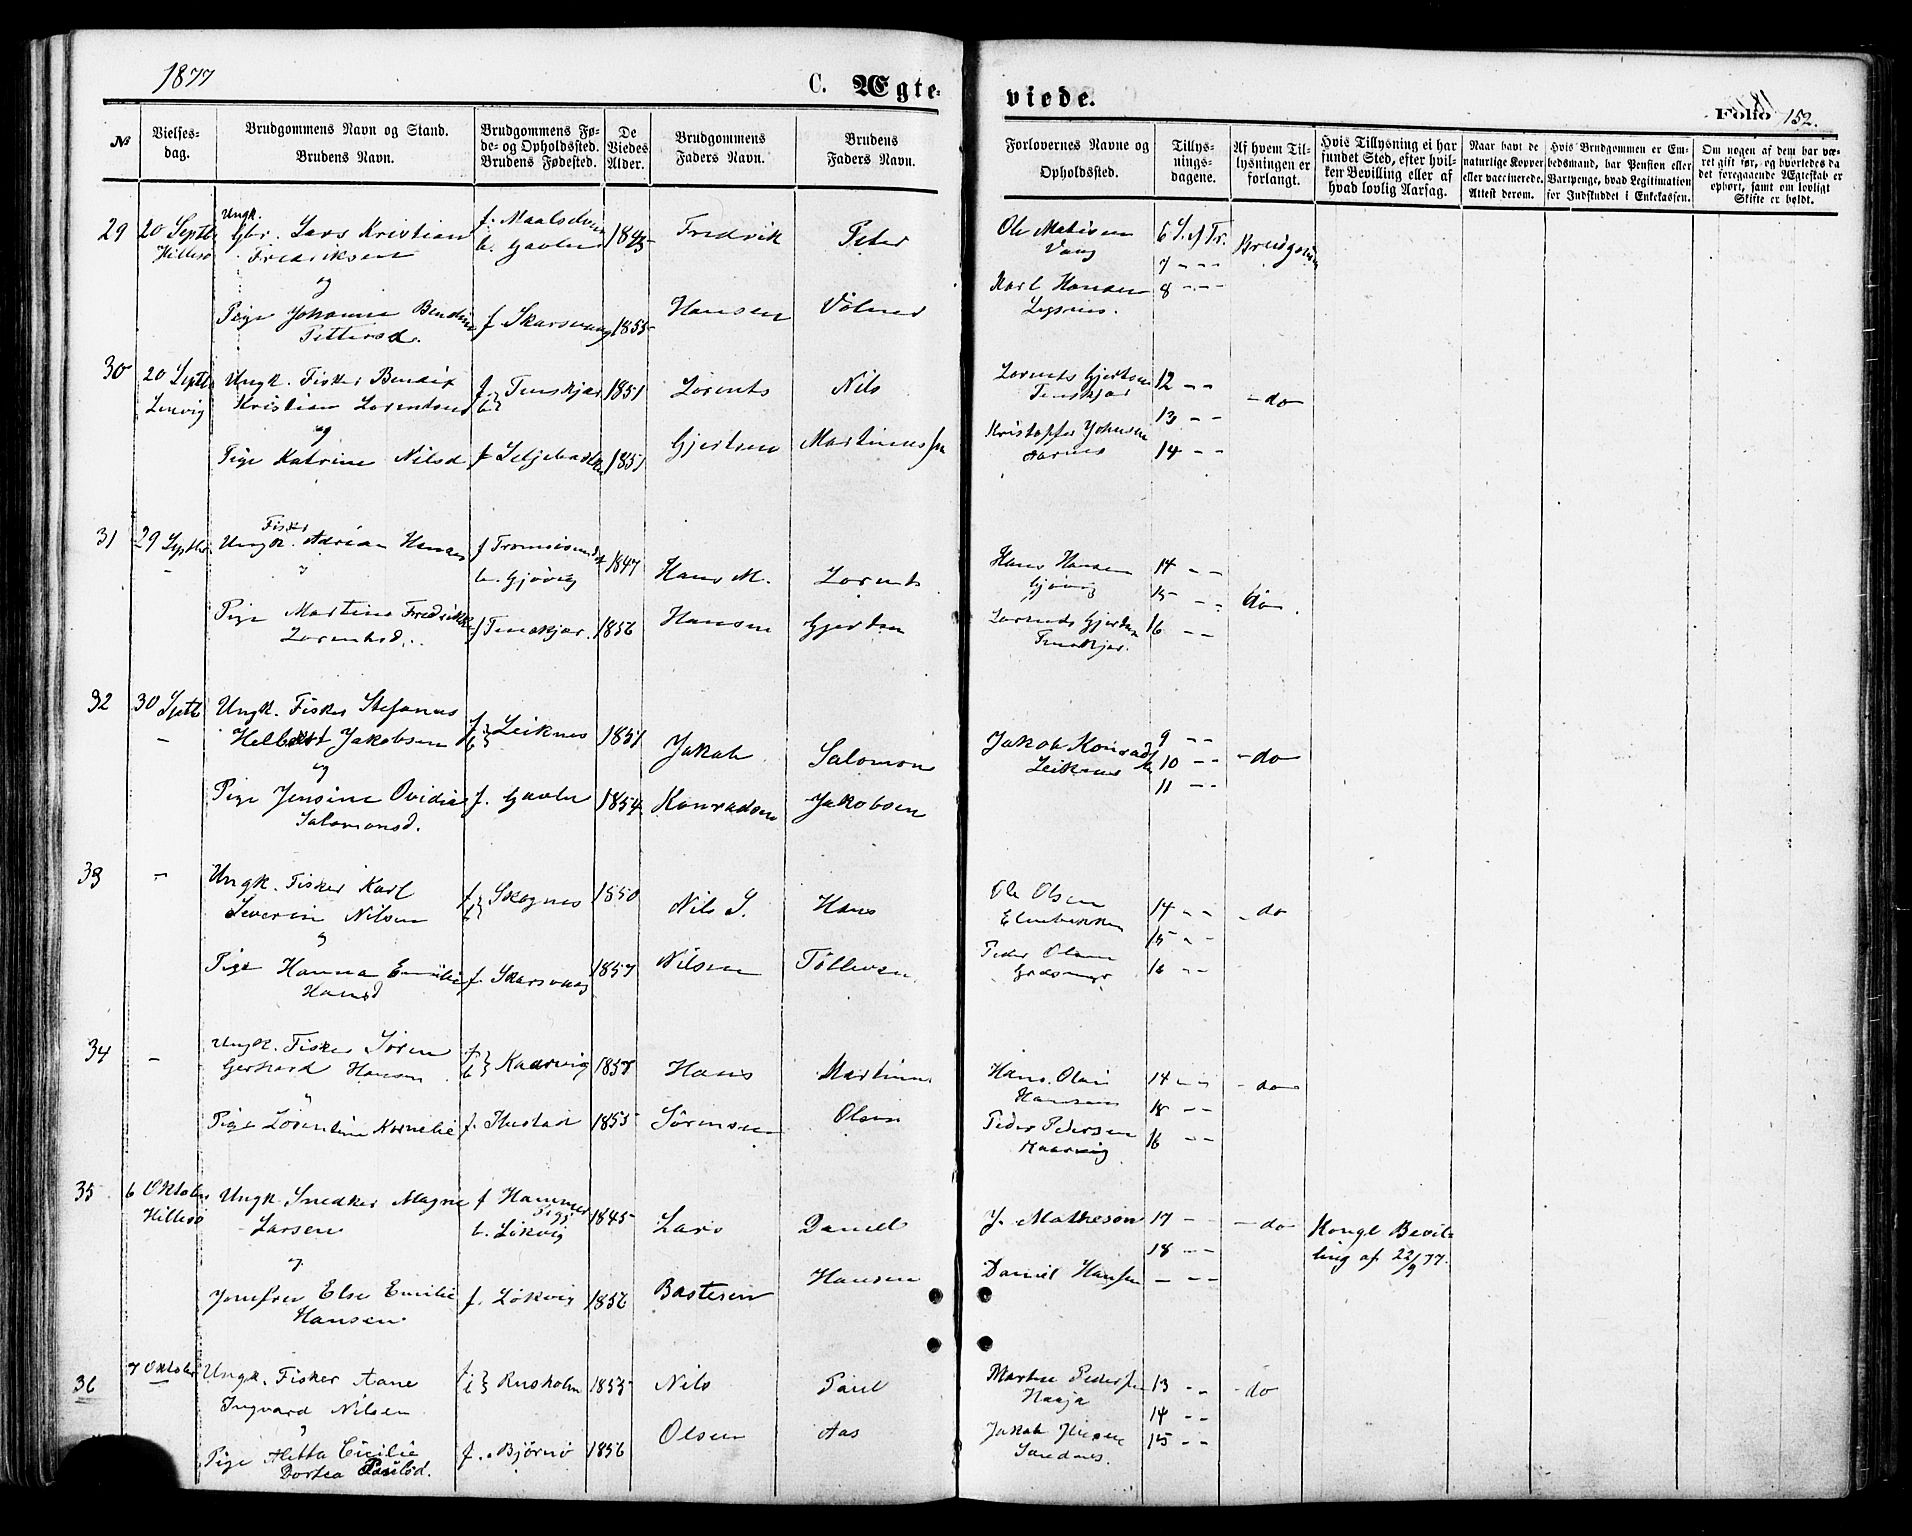 1877
C. Ægte-
viede.
Folio 152.
№
Vielses-
dag.
Brudgommens Navn og Stand.
Brudens Navn.
Brudgommens Fø-
de- og Opholdssted.
Brudens Fødested.
De
Viedes
Alder.
Brudgommens
Faders Navn.
Brudens
Faders Navn.
Forlovernes Navne og
Opholdssted.
Tillys-
nings-
dagene.
Af hvem Til-
lysningen er
forlangt.
Hvis Tillysning ei har
fundet Sted, efter hvil-
ken Bevilling eller af
hvad lovlig Aarsag.
Naar havt de
naturlige Kopper
eller vaccinerede.
Attest derom.
Hvis Brudgommen er Em-
bedsmand, har Pension eller
Vartpenge, hvad Legitimation
for Indskuddet i Enkekassen.
Om nogen af dem har væ-
ret gift før, og hvorledes da
det foregaaende Ægteskab er
ophørt, samt om lovligt
Skifte er holdt.
29 20 Septb Ungk. Gbr. Lars Kristian f. Maalselven 1845 Fredrik Peter Ole Matisen 6 S. ef Tr. Brudgom
Hillesø Fredriksen b. Gavlen Vang 7 - - -
og Karl Hansen 8 - - -
Pige Johanna Bendine f Skarsvaag 1855 Hansen Vølner
Pettersd.
30 20 Septb Ungk. Fisker Bendix f Tenskjær 1851 Lorents Nils Lorents Gjertsen 12 - - - do
Lenvig Kristian Lorentsen b Tenskjær 13 - -
og Kristoffer Johnsen
Pige Katrine Nilsd f 1851 Gjertsen Martinussen Aarnes 14 - -
31 29 Septb Fisker
Ungk. Adrian Hansen f Tromsøsundet 1847 Hans M. Lorents Hans Hansen 14 - - do.
- b. Gjøvig Gjøvig 15 - -
Pige Martina Fredrikke f Tenskjær. 1856 Hansen Gjertsen Lorents Gjertsen 16 - -
Lorentsd. Tenskjær.
32 30 Septb Ungk. Fisker Stefanus f Leiknes 1851 Jakob Salomon Jakob Konradsen 9 - - - do
- Jakobsen b Leiknes 10 - -
og 11 - -
Pige Jensine Ovidia f. Gavlen 1854 Konradsen Jakobsen
Salomonsd.
33 - Ungk. Fisker Karl f Skognes 1850 Nils S. Hans Ole Olsen 14 - - - do
Severin Nilsen b 15 - -
og Peder Olsen
Pige Hanna Emilie f. Skarsvaag 1857 Nilsen Tollevsen 16 - -
Hansd
34 - Ungk. Fisker Søren f Kaarvig 1857 Hans Martinus Hans Olai 14 - - - do
Gerhard Hansen b Hansen 15 - -
Pige Lorentine Kornelie f. 1855 Sørensen Olsen Peder Pedersen 16 - -
Kaarvig
35 6 Oktober Ungk. Snedker Magne f Hammer 1845 Lars Daniel J. Matheson 17 - - do Kongl Bevil-
Hillesø Larsen b. Løkvig 18 - - - ling af 22/9 77.
og
Jomfru Else Emilie f. Løkvig 1856 Bastesen Hansen Daniel Hansen - - -
Hansen
36 7 Oktober Ungk. Fisker Aane f Rusholm 1855 Nils Paul Martin Pedersen 13 - - - do
Ingvard Nilsen b Haaja 14 - -
Pige Aletta Cicilie f. Bjørnø 1856 Olsen Aas Jakob Jensen 15 - -
Dortea Paulsd. Sandnes.